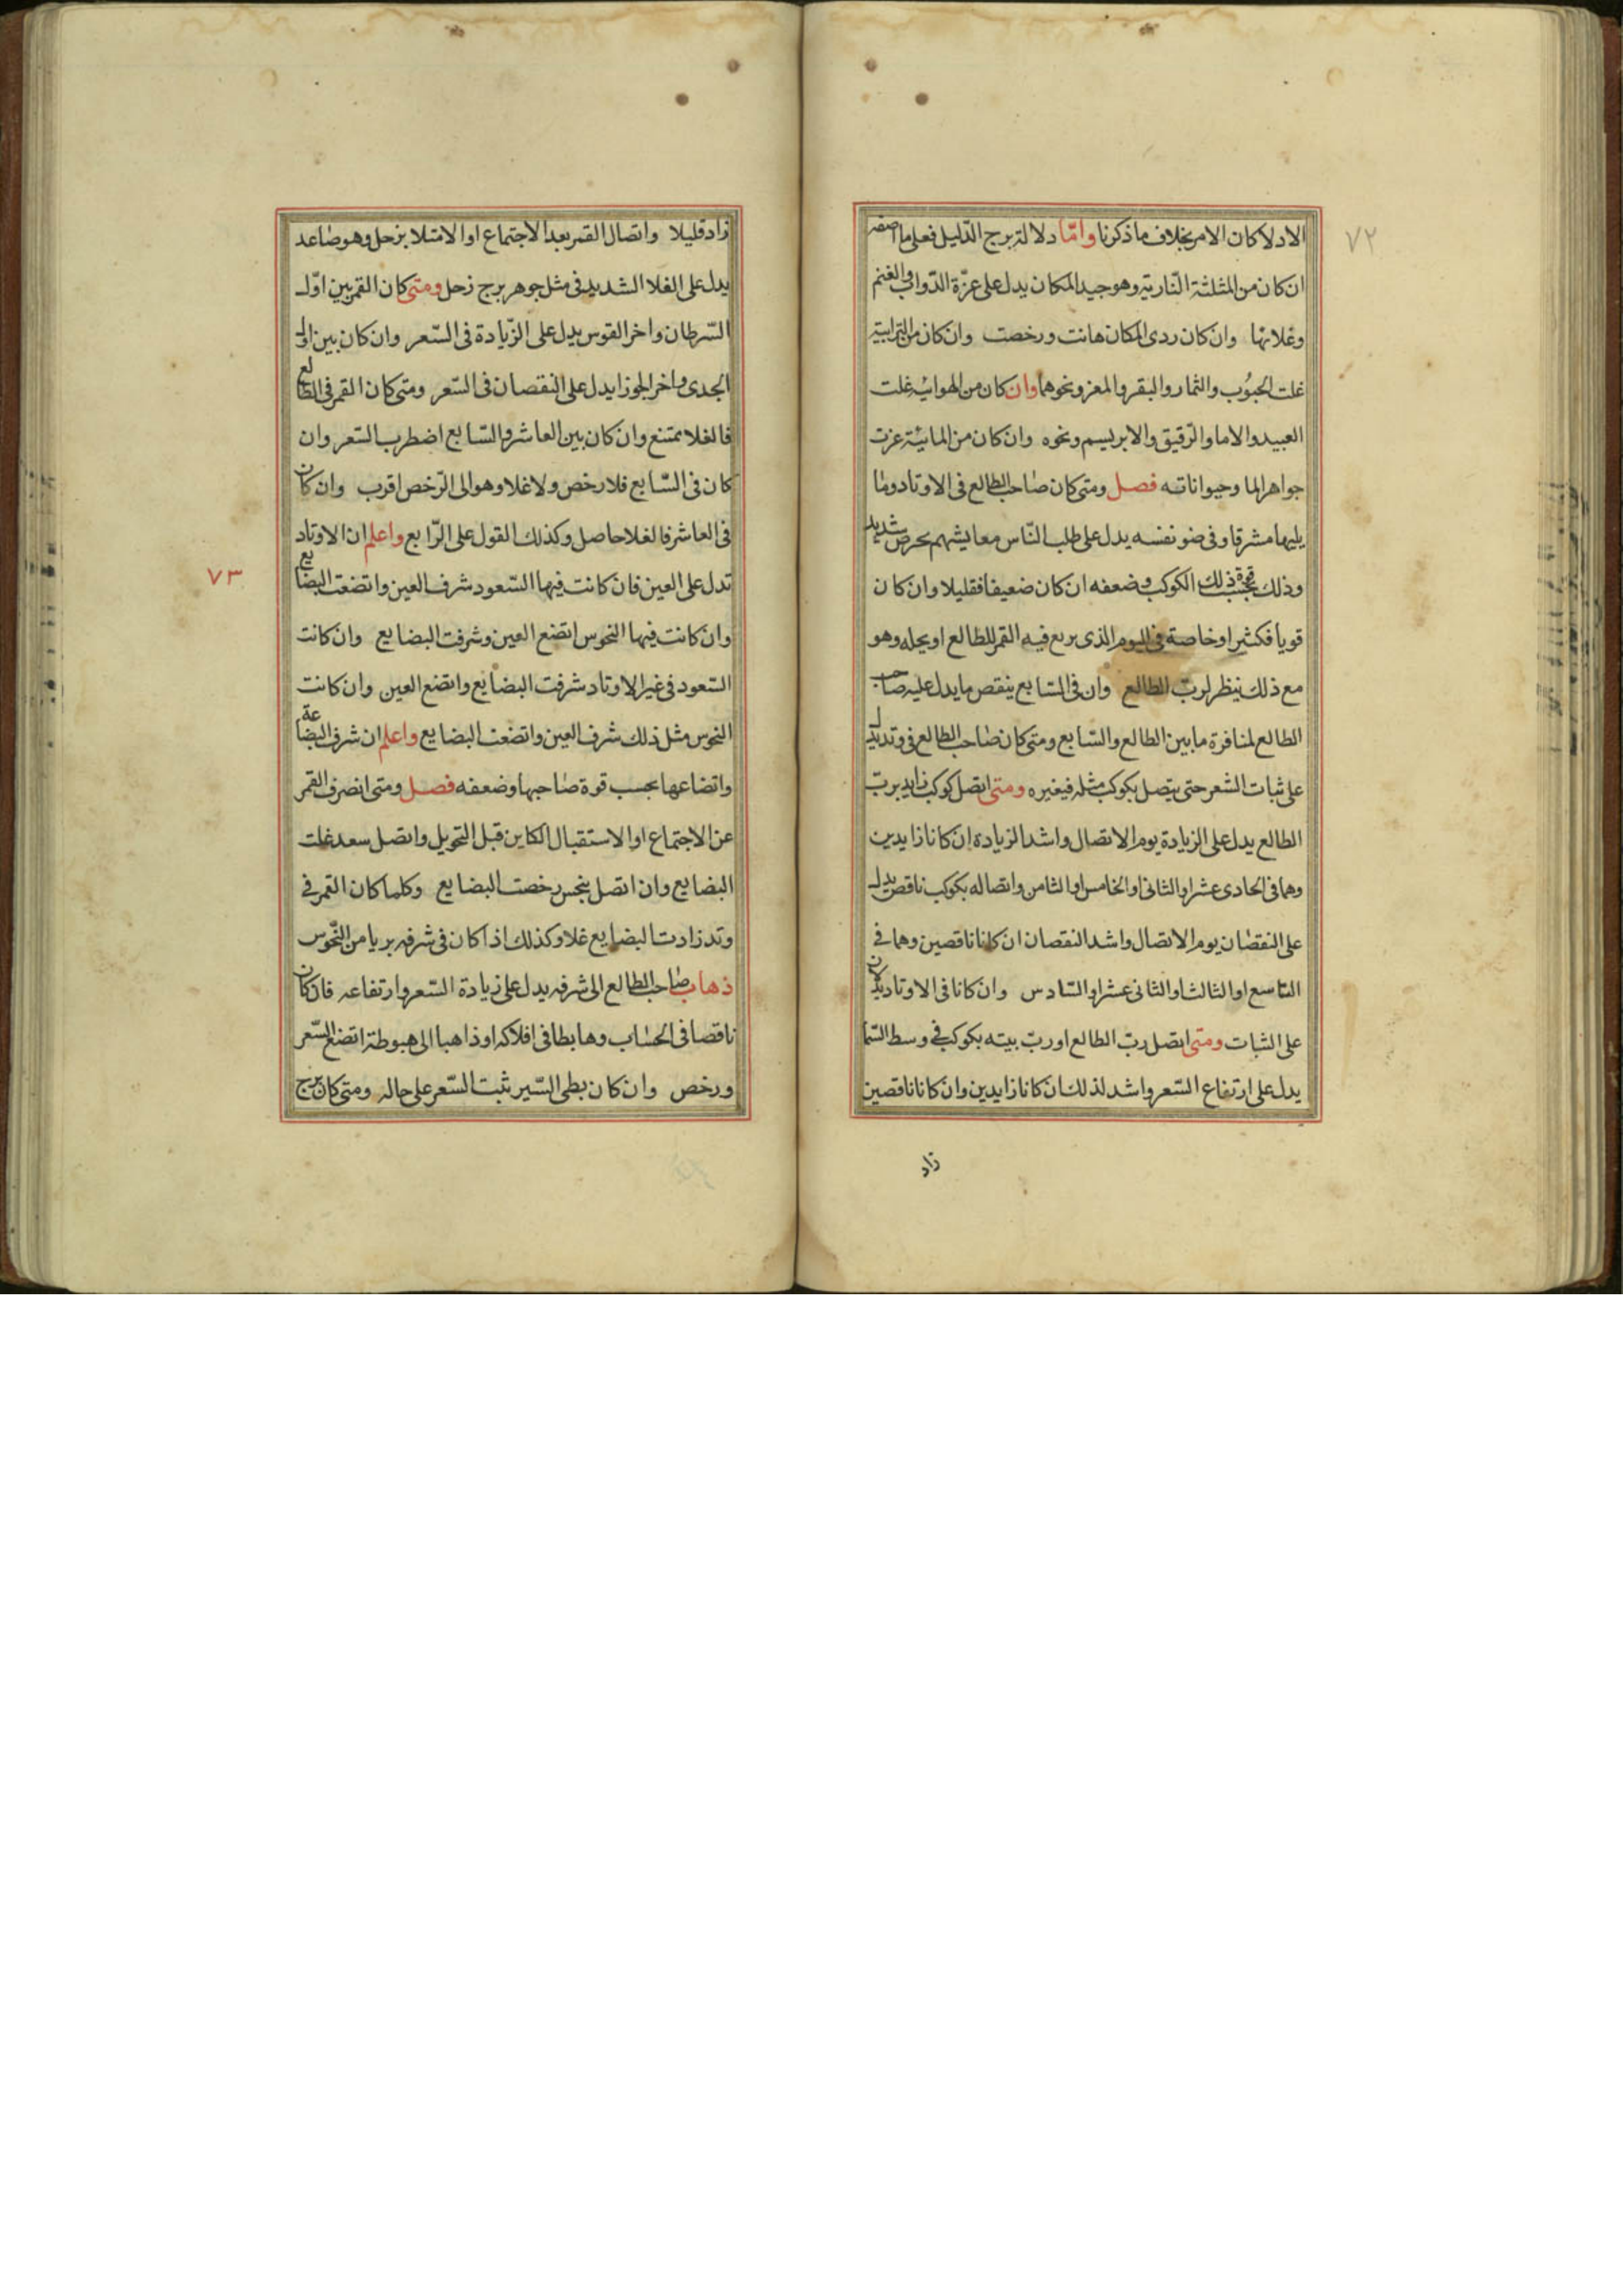 ٧٢
الادلا كان الامر بخلاف ما ذكرنا وامّا دلالة برج الدّليل فعلى ما اصفه
ان كان من المثلثة النّارية وهو جيد المكان يدل على عزّة الدّواب والغنم
وغلائها وان كان ردى المكان هانت ورخصت وان كان من الترابية
غلت الحبوُب والثمار والبقر والمعز ونحوها وان كان من الهوائية غلت
العبيد والاما والرّقيق والابريسم ونحوه وان كان من المائيّة عزت
جواهر الما وحيواناته فصل ومتى كان صاحب الطالع فى الاوتاد وما
يليها مشرقا وفى ضو نفسه يدل على طلب النّاس معايشهم بحرص شديد
وذلك بحسب قوة ذلك الكوكب وضعفه ان كان ضعيفا فقليلا وان كان
قويا فكثيرا وخاصة فى اليوم الذى يربع فيه القمر للطالع او يحله وهو
مع ذلك ينظر لربّ الطالع وان فى السّابع ينقص ما يدل عليه صاحب
الطالع لمنافرة ما بين الطالع والسّابع ومتى كان صاحب الطالع فى وتد يدل
على ثبات السّعر حتى يتصل بكوكب مثله فيغيره ومتى اتصل كوكب زايد بربّ
الطالع يدل على الزيادة يوم الاتصال واشد الزيادة ان كانا زايدين
وهما فى الحادى عشر او الثانى او الخامس او الثامن واتصاله بكوكب ناقص يدل
على النقصان يوم الاتصال واشد النقصان ان كانا ناقصين وهما فى
التاسع او الثالث او الثانى عشر او السّادس وان كانا فى الاوتاد يدلان
على الثبات ومتى اتصل ربّ الطالع او ربّ بيته بكوكب فى وسط السّما
يدل على ارتفاع السّعر واشد لذلك ان كانا زايدين وان كانا ناقصين
زاد
زاد قليلا واتصال القمر بعد الاجتماع او الامتلا بزحل وهو صاعد
يدل على الغلا الشديد فى مثل جوهر برج زحل ومتى كان القمر بين اوّل
السّرطان واخر القوس يدل على الزّيادة فى السّعر وان كان بين اول
الجدى واخر الجوزا يدل على النقصان فى السّعر ومتى كان القمر فى الطالع
فالغلا ممتنع وان كان بين العاشر والسّابع اضطرب السّعر وان
كان فى السّابع فلا رخص ولا غلا وهو الى الرّخص اقرب وان كان
فى العاشر فالغلا حاصل وكذلك القول على الرّابع واعلم ان الاوتاد
٧٣
تدل على العين فان كانت فيها السّعود شرف العين واتضعت البضايع
وان كانت فيها النحوس اتضع العين وشرفت البضايع وان كانت
السّعود فى غير الاوتاد شرفت البضايع واتضع العين وان كانت
النحوس مثل ذلك شرف العين واتضعت البضايع واعلم ان شرف البضاعة
واتضاعها بحسب قوة صاحبها وضعفه فصل ومتى انصرف القمر
عن الاجتماع او الاستقبال الكاين قبل التحويل واتصل سعد غلت
البضايع وان اتصل بنحس رخصت البضايع وكلما كان القمر فى
وتد زادت البضايع غلا وكذلك اذا كان فى شرفه بريا من النّحوس
ذهاب صاحب الطالع الى شرفه يدل على زيادة السّعر وارتفاعه فان كان
ناقصا فى الحساب وهابطا فى افلاكه او ذاهبا الى هبوطه اتضع السّعر
ورخص وان كان بطى السّير ثبت السّعر على حاله ومتى كان برج